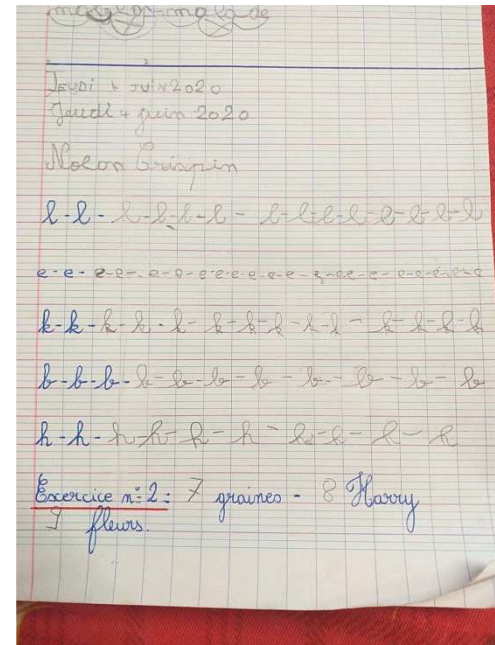 Jeudi 4 juin 2020
Jeudi 4 juin 2020
Nolan Crispin
l - l - l - l - l - l - l - l - l - l - l - l - l - l - l
e - e - e - e - e - e - e - e - e - e - e - e - e - e - e - e - e - e - e - e
k - k - k - k - k - k - k - k - k - k - k - k - k - k
b - b - b - b - b - b - b - b - b - b - b
h - h - h - h - h - h - h - h - h - h
Excercice n°2 : 7 graines - 8 Harry
9 fleurs.